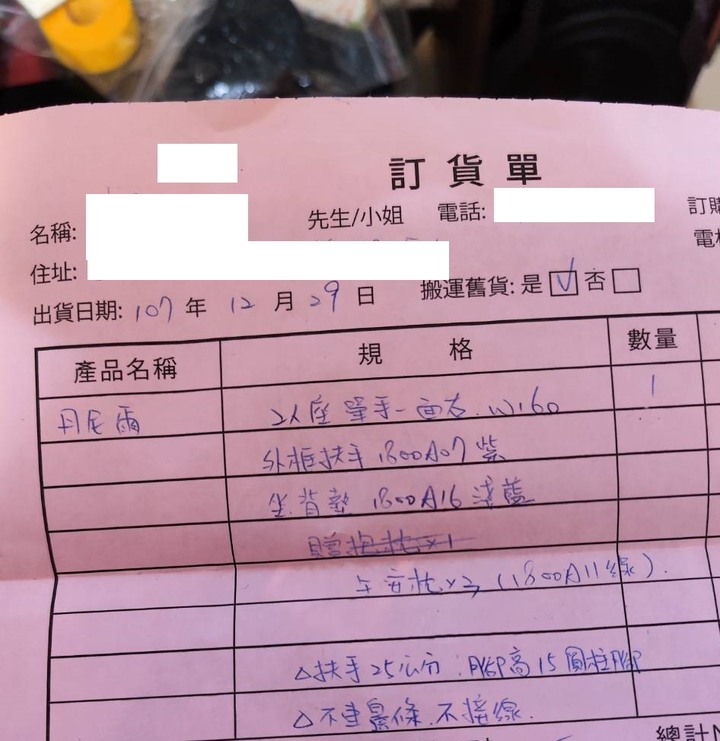 訂貨單
名稱: 先生/小姐 電話: 訂購
住址: 電
出貨日期: 107 年 12 月 29 日 搬運舊貨: 是 ☑ 否 □
產品名稱 規格 數量
丹尼爾 2人座單手-面右. W160 1
外框扶手 1800A07 紫
坐.背墊 1800A16 淺藍
贈抱枕×1
(1800A11綠).
△扶手25公分. 腳高15圓柱腳
△不車鬃條.不接線.
總計N